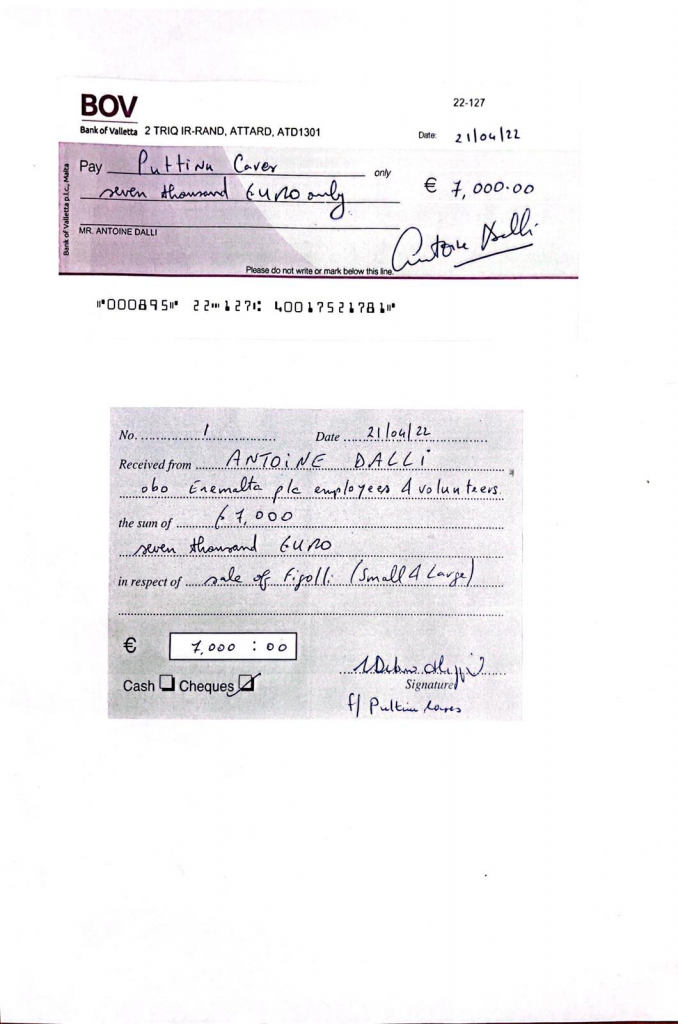 BOV
22-127
Bank of Valletta 2 TRIQ IR-RAND, ATTARD, ATD1301
Date: 21/04/22
Bank of Valletta p.l.c., Malta
Pay Puttinu Cares only
seven thousand EURO only
€ 7,000.00
MR. ANTOINE DALLI
Antoine Dalli
Please do not write or mark below this line.
⑈000895⑈ 22⑉127⑆ 40017521781⑈
No. 1 Date 21/04/22
Received from ANTOINE DALLI
obo Enemalta plc employees & volunteers
the sum of €7,000
seven thousand EURO
in respect of sale of Figolli (Small & Large)
€ 7,000 : 00
Cash Cheques
Signature
f/ Puttinu Cares